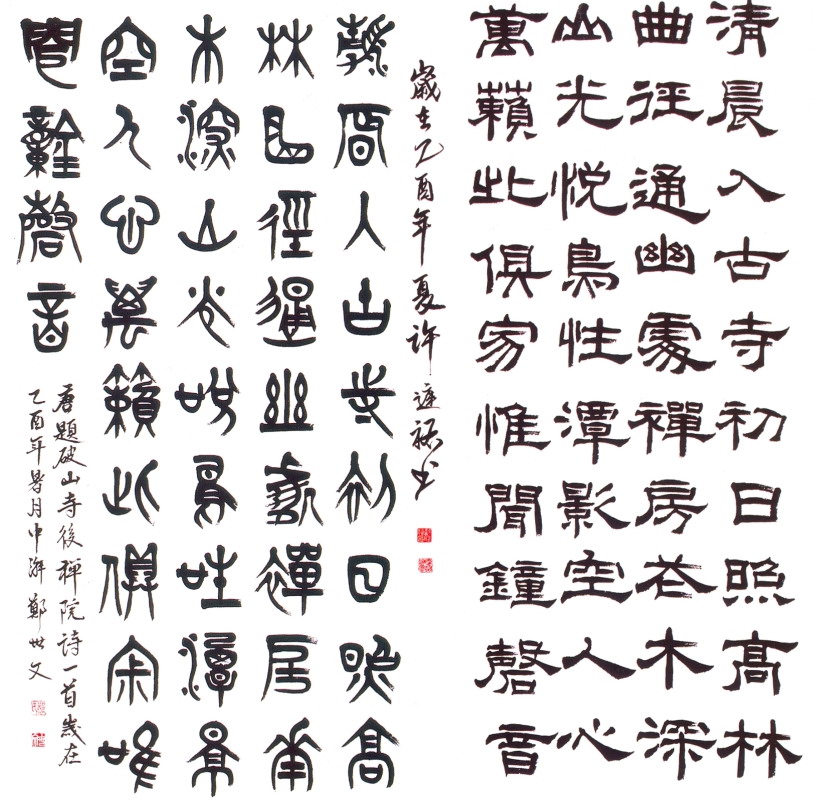 清晨入古寺初日照高林
曲徑通幽處禪房花木深
山光悅鳥性潭影空人心
萬籟此俱寂惟聞鐘磬音
歲在乙酉年夏許書
清晨入古寺初日照高
林曲徑通幽處禪房花
木深山光悅鳥性潭影
空人心萬籟此俱寂唯
聞鐘磬音
唐題破山寺後禪院詩一首歲在
乙酉年暑月中澣鄭世文